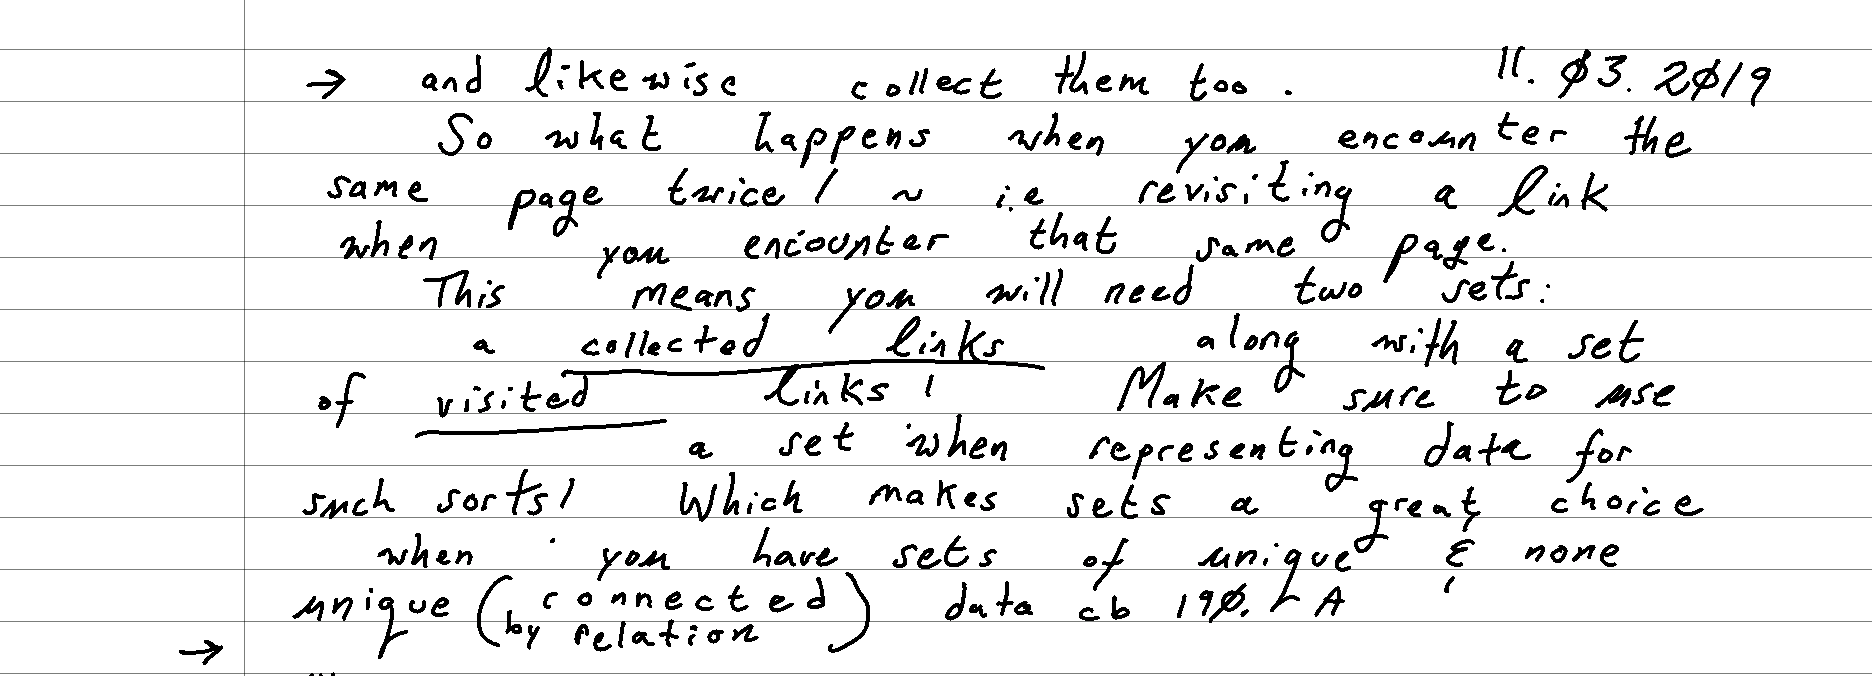 → and likewise collect them too. 11. ø3. 2ø19
So what happens when you encounter the
same page twice! ~ i.e revisiting a link
when you encounter that same page.
This means you will need two sets:
a collected links along with a set
of visited links! Make sure to use
a set when representing data for
such sorts! Which makes sets a great choice
when you have sets of unique & none
unique (connected by relation) data cb 19ø. A
→